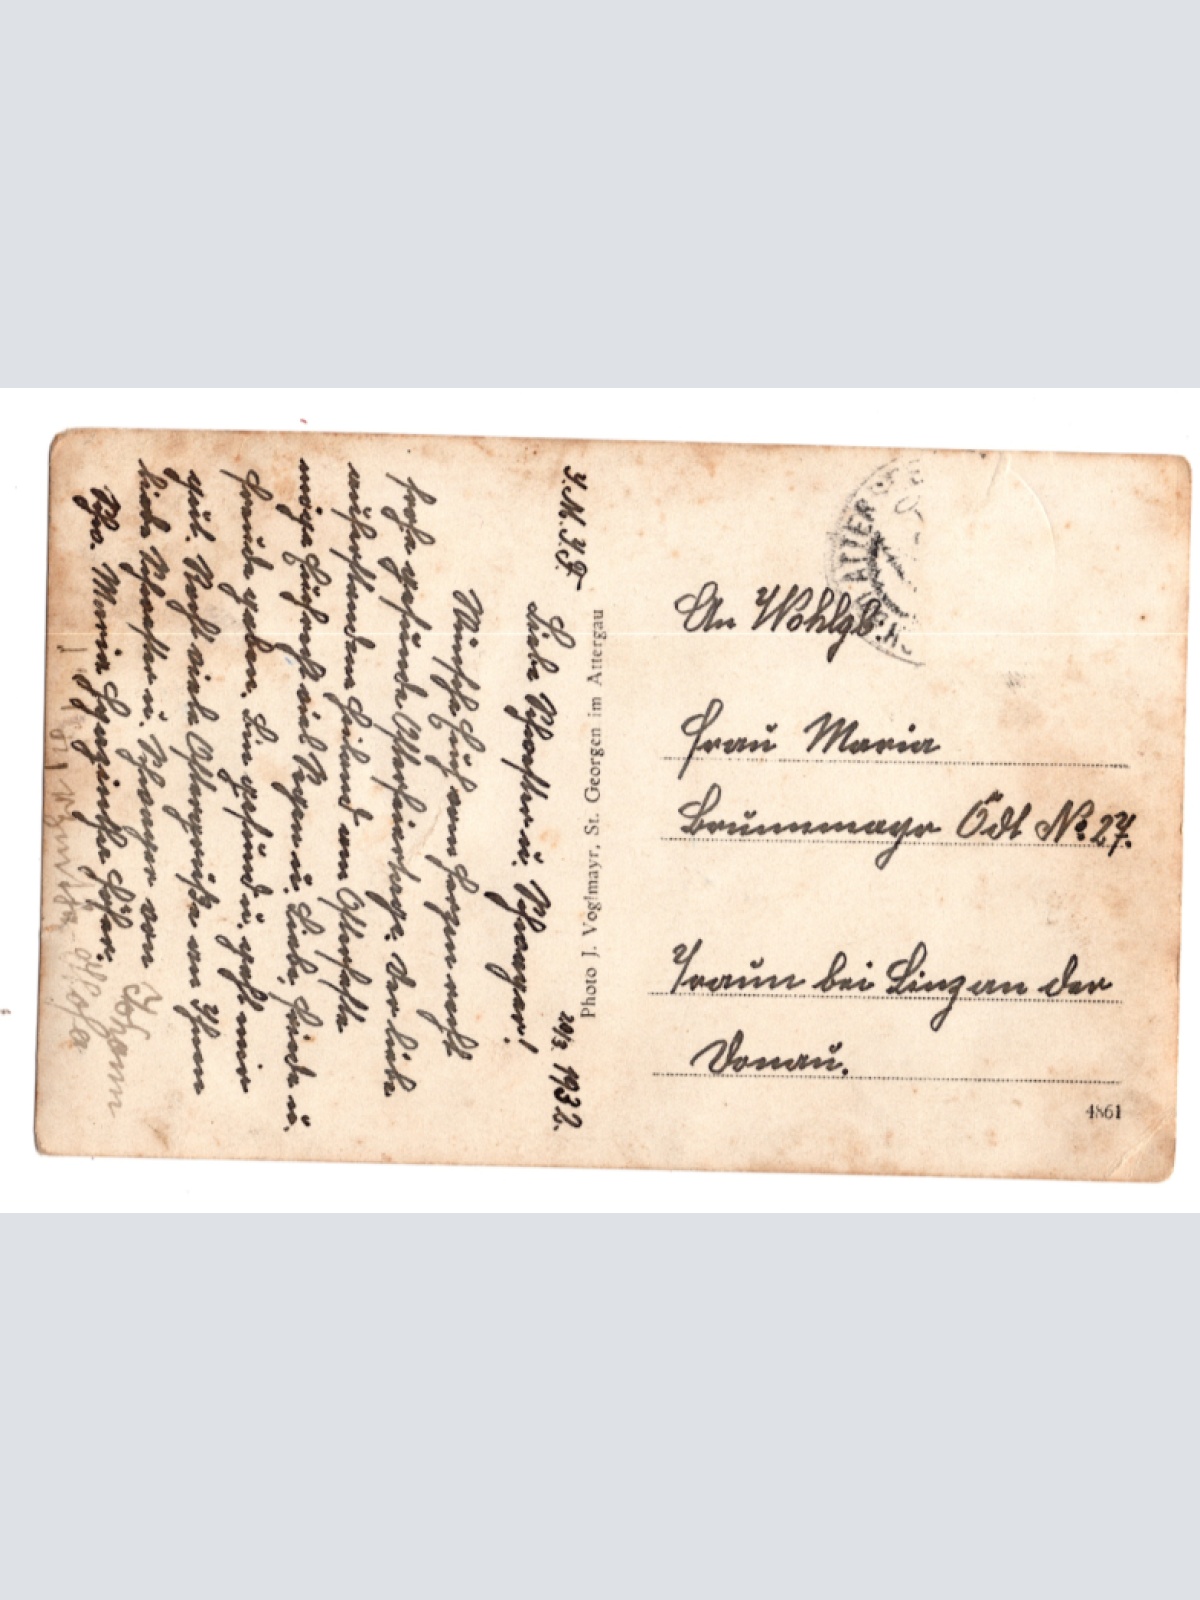 J. M. J. F. 20/3. 1932.
Liebe Schwester u. Schwager!
Wünsche Euch vom Herzen recht
frohe gesunde Osterfeiertage. Der liebe
auferstandene Heiland am Osterfeste
möge Euch recht viel Segen u. Liebe, Friede u.
Freude geben. Bin gesund u. geht mir
gut. Recht viele Ostergrüße an Ihnen
liebe Schwester u. Schwager von
Schw. Maria
Johann
Photo J. Voglmayr, St. Georgen im Attergau
ATTER
An Wohlgb.
Frau Maria
Brunnmayr Ödt No. 27.
Traun bei Linz an der
Donau.
4861